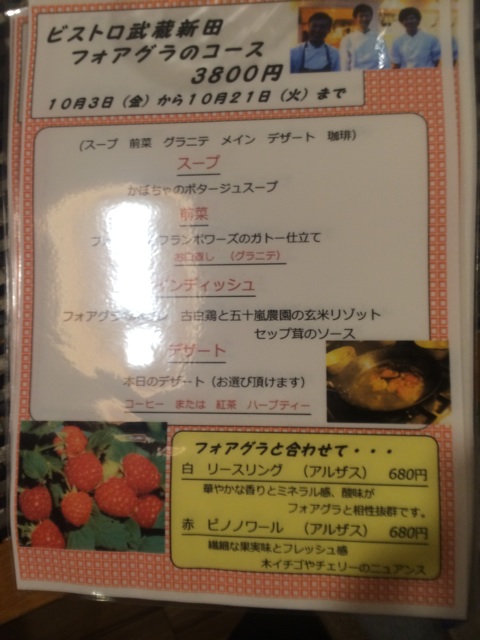 ビストロ武蔵新田
フォアグラのコース
3800円
10月3日(金)から10月21日(火)まで
(スープ 前菜 グラニテ メイン デザート 珈琲)
スープ
かぼちゃのポタージュスープ
前菜
フランボワーズのガトー仕立て
お口直し (グラニテ)
インディッシュ
フォアグラ 古白鶏と五十嵐農園の玄米リゾット
セップ茸のソース
デザート
本日のデザート(お選び頂けます)
コーヒー または 紅茶 ハーブティー
フォアグラと合わせて・・・
白 リースリング (アルザス) 680円
華やかな香りとミネラル感、酸味が
フォアグラと相性抜群です。
赤 ピノノワール (アルザス) 680円
繊細な果実味とフレッシュ感
木イチゴやチェリーのニュアンス